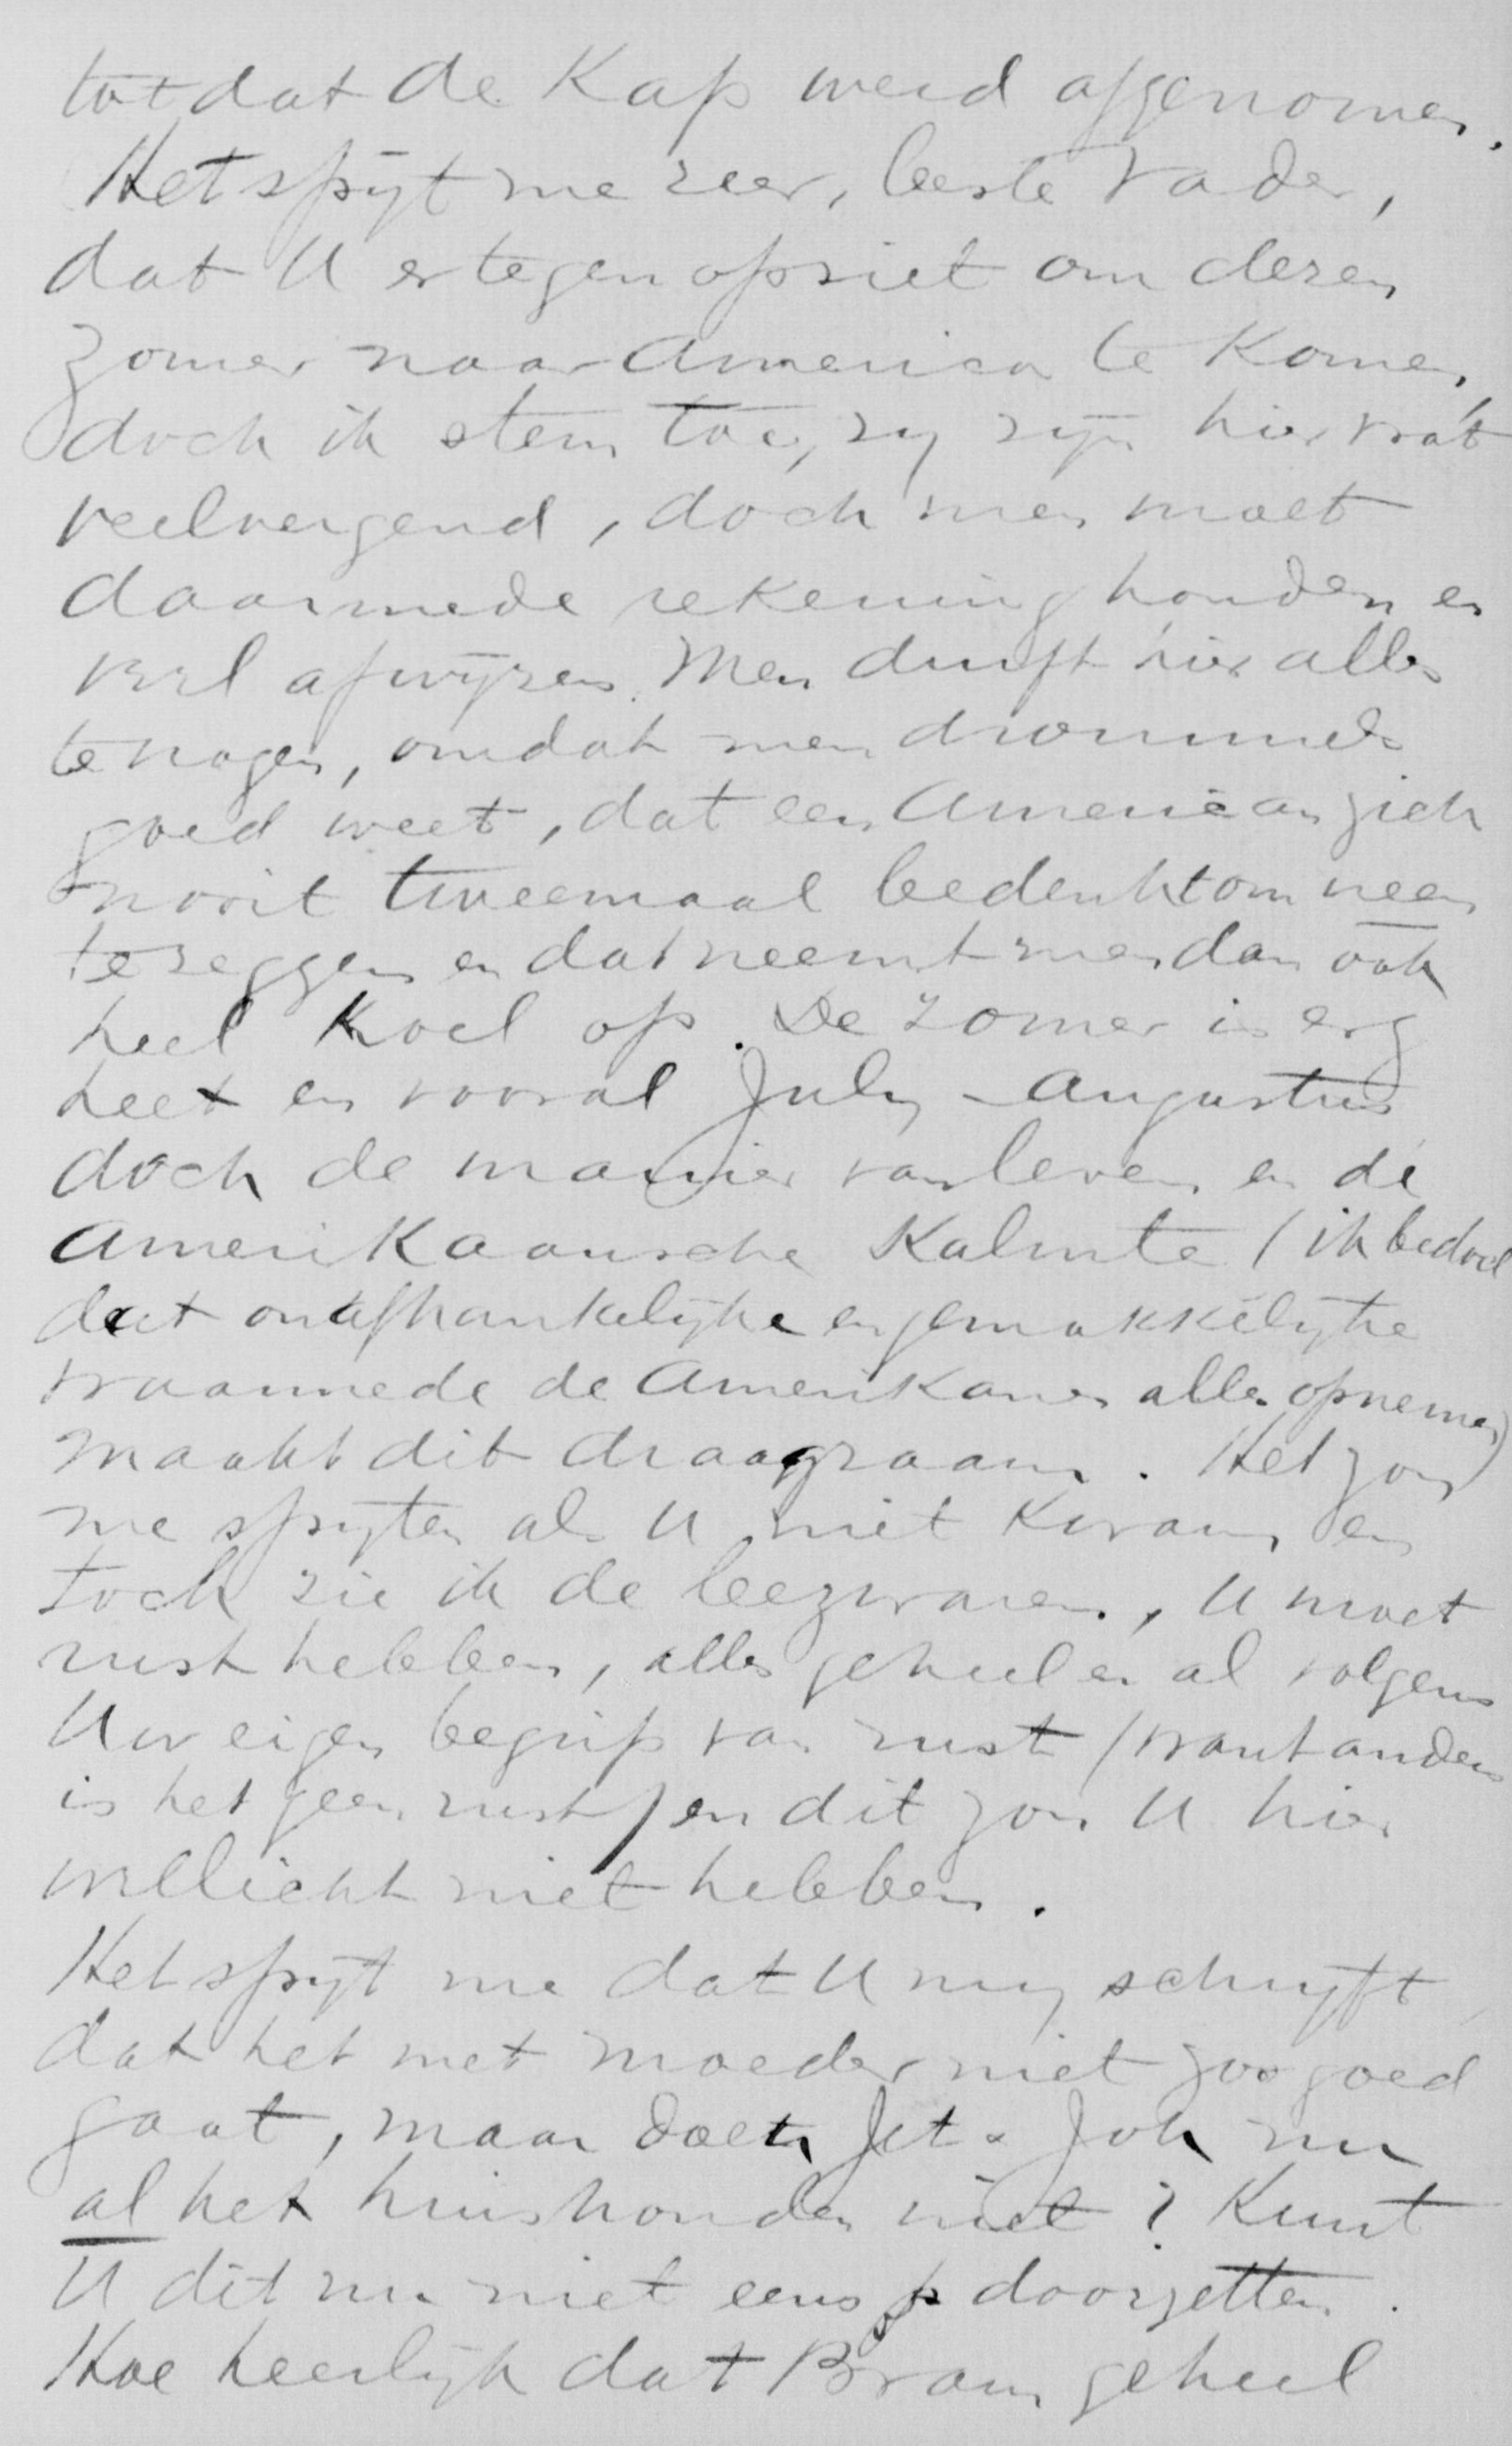 totdat de Kap werd afgenomen.
Het spijt me zeer, beste Vader,
dat U er tegen opziet om dezen
zomer naar America te Komen,
doch ik stem toe, zy zijn hier wat
veelvergend, doch men moet
daarmede rekening houden en
veel afwijzen. Men durft hier alles
te vragen, omdat men drommels
goed weet, dat een American zich
nooit tweemaal bedenkt om neen
te zeggen en dat neemt men dan ook
heel Koel op. De zomer is erg
heet en vooral July - Augustus
doch de manier van leven en de
Amerikaansche Kalmte (ik bedoel
dat onafhankelijke en gemakkelijke
waarmede de Amerikanen alles opnemen)
maakt dit draagzaam. Het zou
me spyten als U niet Kwam en
toch zie ik de bezwaren, U moet
rust hebben, alles geheel en al volgens
Uw eigen begrip van rust (want anders
is het geen rust) en dit zou U hier
wellicht niet hebben.
Het spijt me dat U my schryft
dat het met moeder niet zoo goed
gaat, maar doen Jet & Joh nu
al het huishouden niet? Kunt
U dit nu niet eens doorzetten.
Hoe heerlijk dat Bram geheel